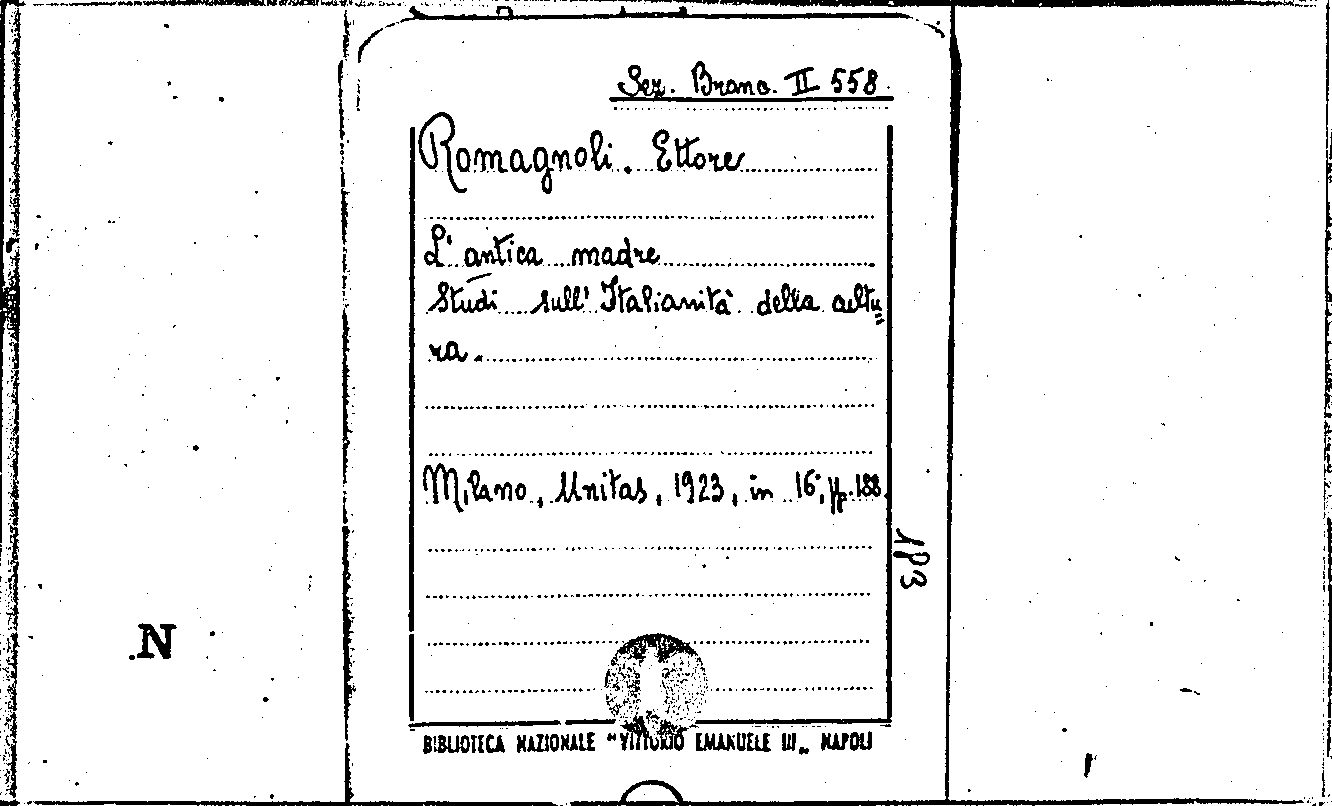 Sez. Branc. II 558.
Romagnoli. Ettore
L'antica madre
Studi sull'Italianità della cultu=
ra.
Milano, Unitas, 1923, in 16°, pp. 188.
183
N
BIBLIOTECA NAZIONALE "VITTORIO EMANUELE III„ NAPOLI